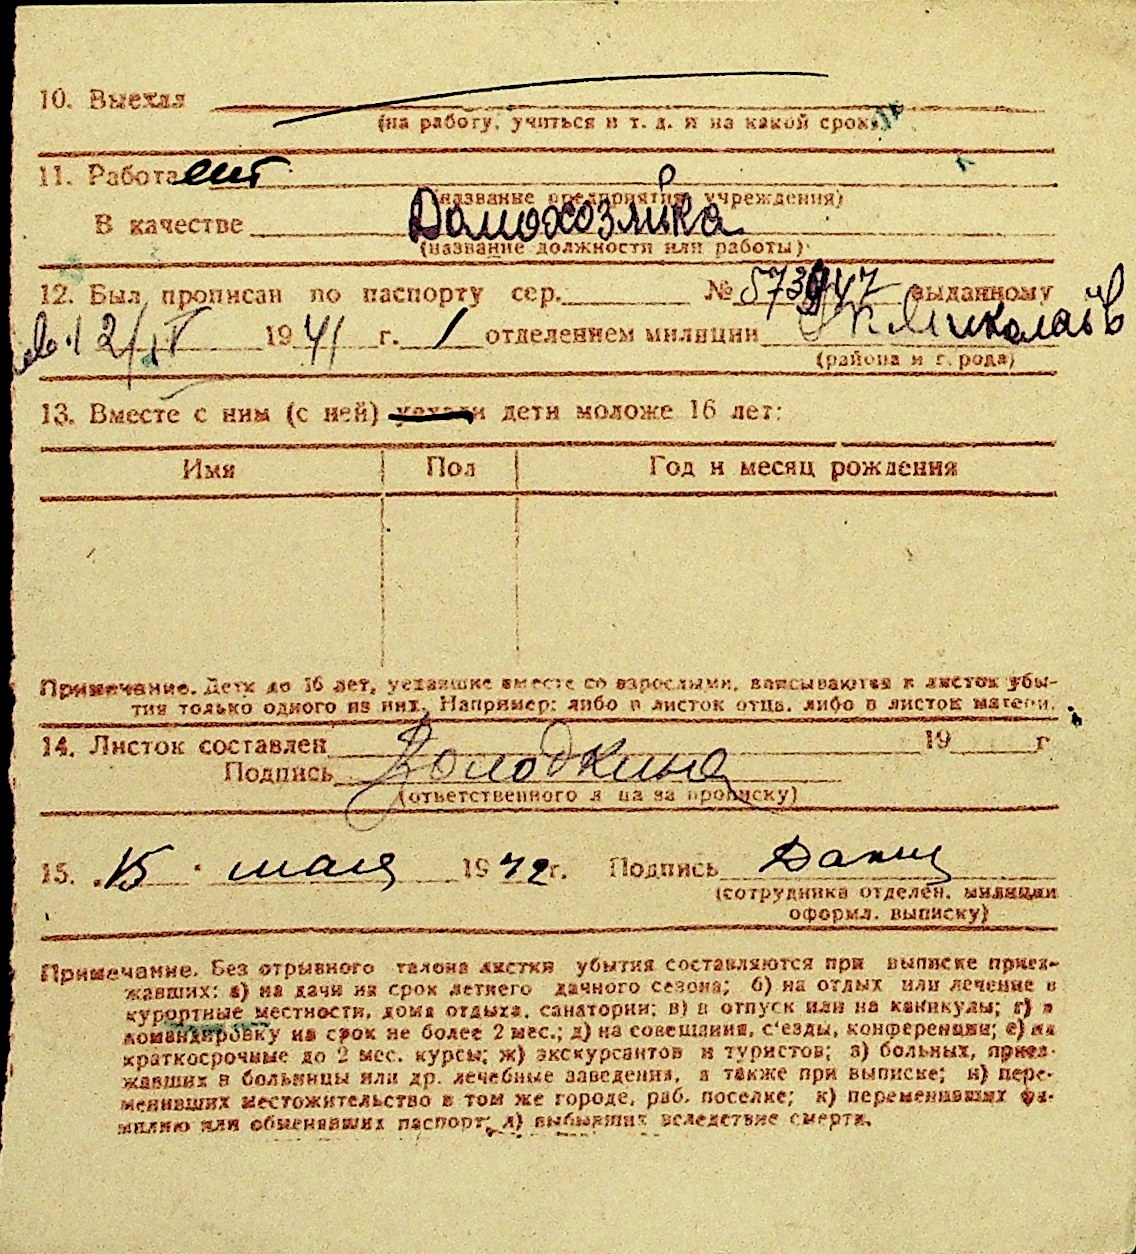 10. Выехал
(на работу, учиться и т. д. и на какой срок)
11. Работа
(название предприятия, учреждения)
В качестве Домохозяйка
(название должности или работы)
12. Был прописан по паспорту сер. № 573947 выданному
2/IV 1941 г. 1 отделением милиции г. Николаев
(района и города)
13. Вместе с ним (с ней) уехали дети моложе 16 лет:
Имя Пол Год и месяц рождения
Примечание. Дети до 16 лет, уехавшие вместе со взрослыми, вписываются в листок убы-
тия только одного из них. Например: либо в листок отца, либо в листок матери.
14. Листок составлен 19 г
Подпись Володкина
(ответственного лица за прописку)
15. 15 мая 1942 г. Подпись
(сотрудника отделен. милиции
оформл. выписку)
Примечание. Без отрывного талона листки убытия составляются при выписке приез-
жавших: а) на дачи на срок летнего дачного сезона; б) на отдых или лечение в
курортные местности, дома отдыха, санатории; в) в отпуск или на каникулы; г) в
командировку на срок не более 2 мес.; д) на совещания, с'езды, конференции; е) на
краткосрочные до 2 мес. курсы; ж) экскурсантов и туристов; з) больных, приез-
жавших в больницы или др. лечебные заведения, а также при выписке; и) пере-
менивших местожительство в том же городе, раб. поселке; к) переменивших фа-
милию или обменявших паспорт; л) выбывших вследствие смерти.